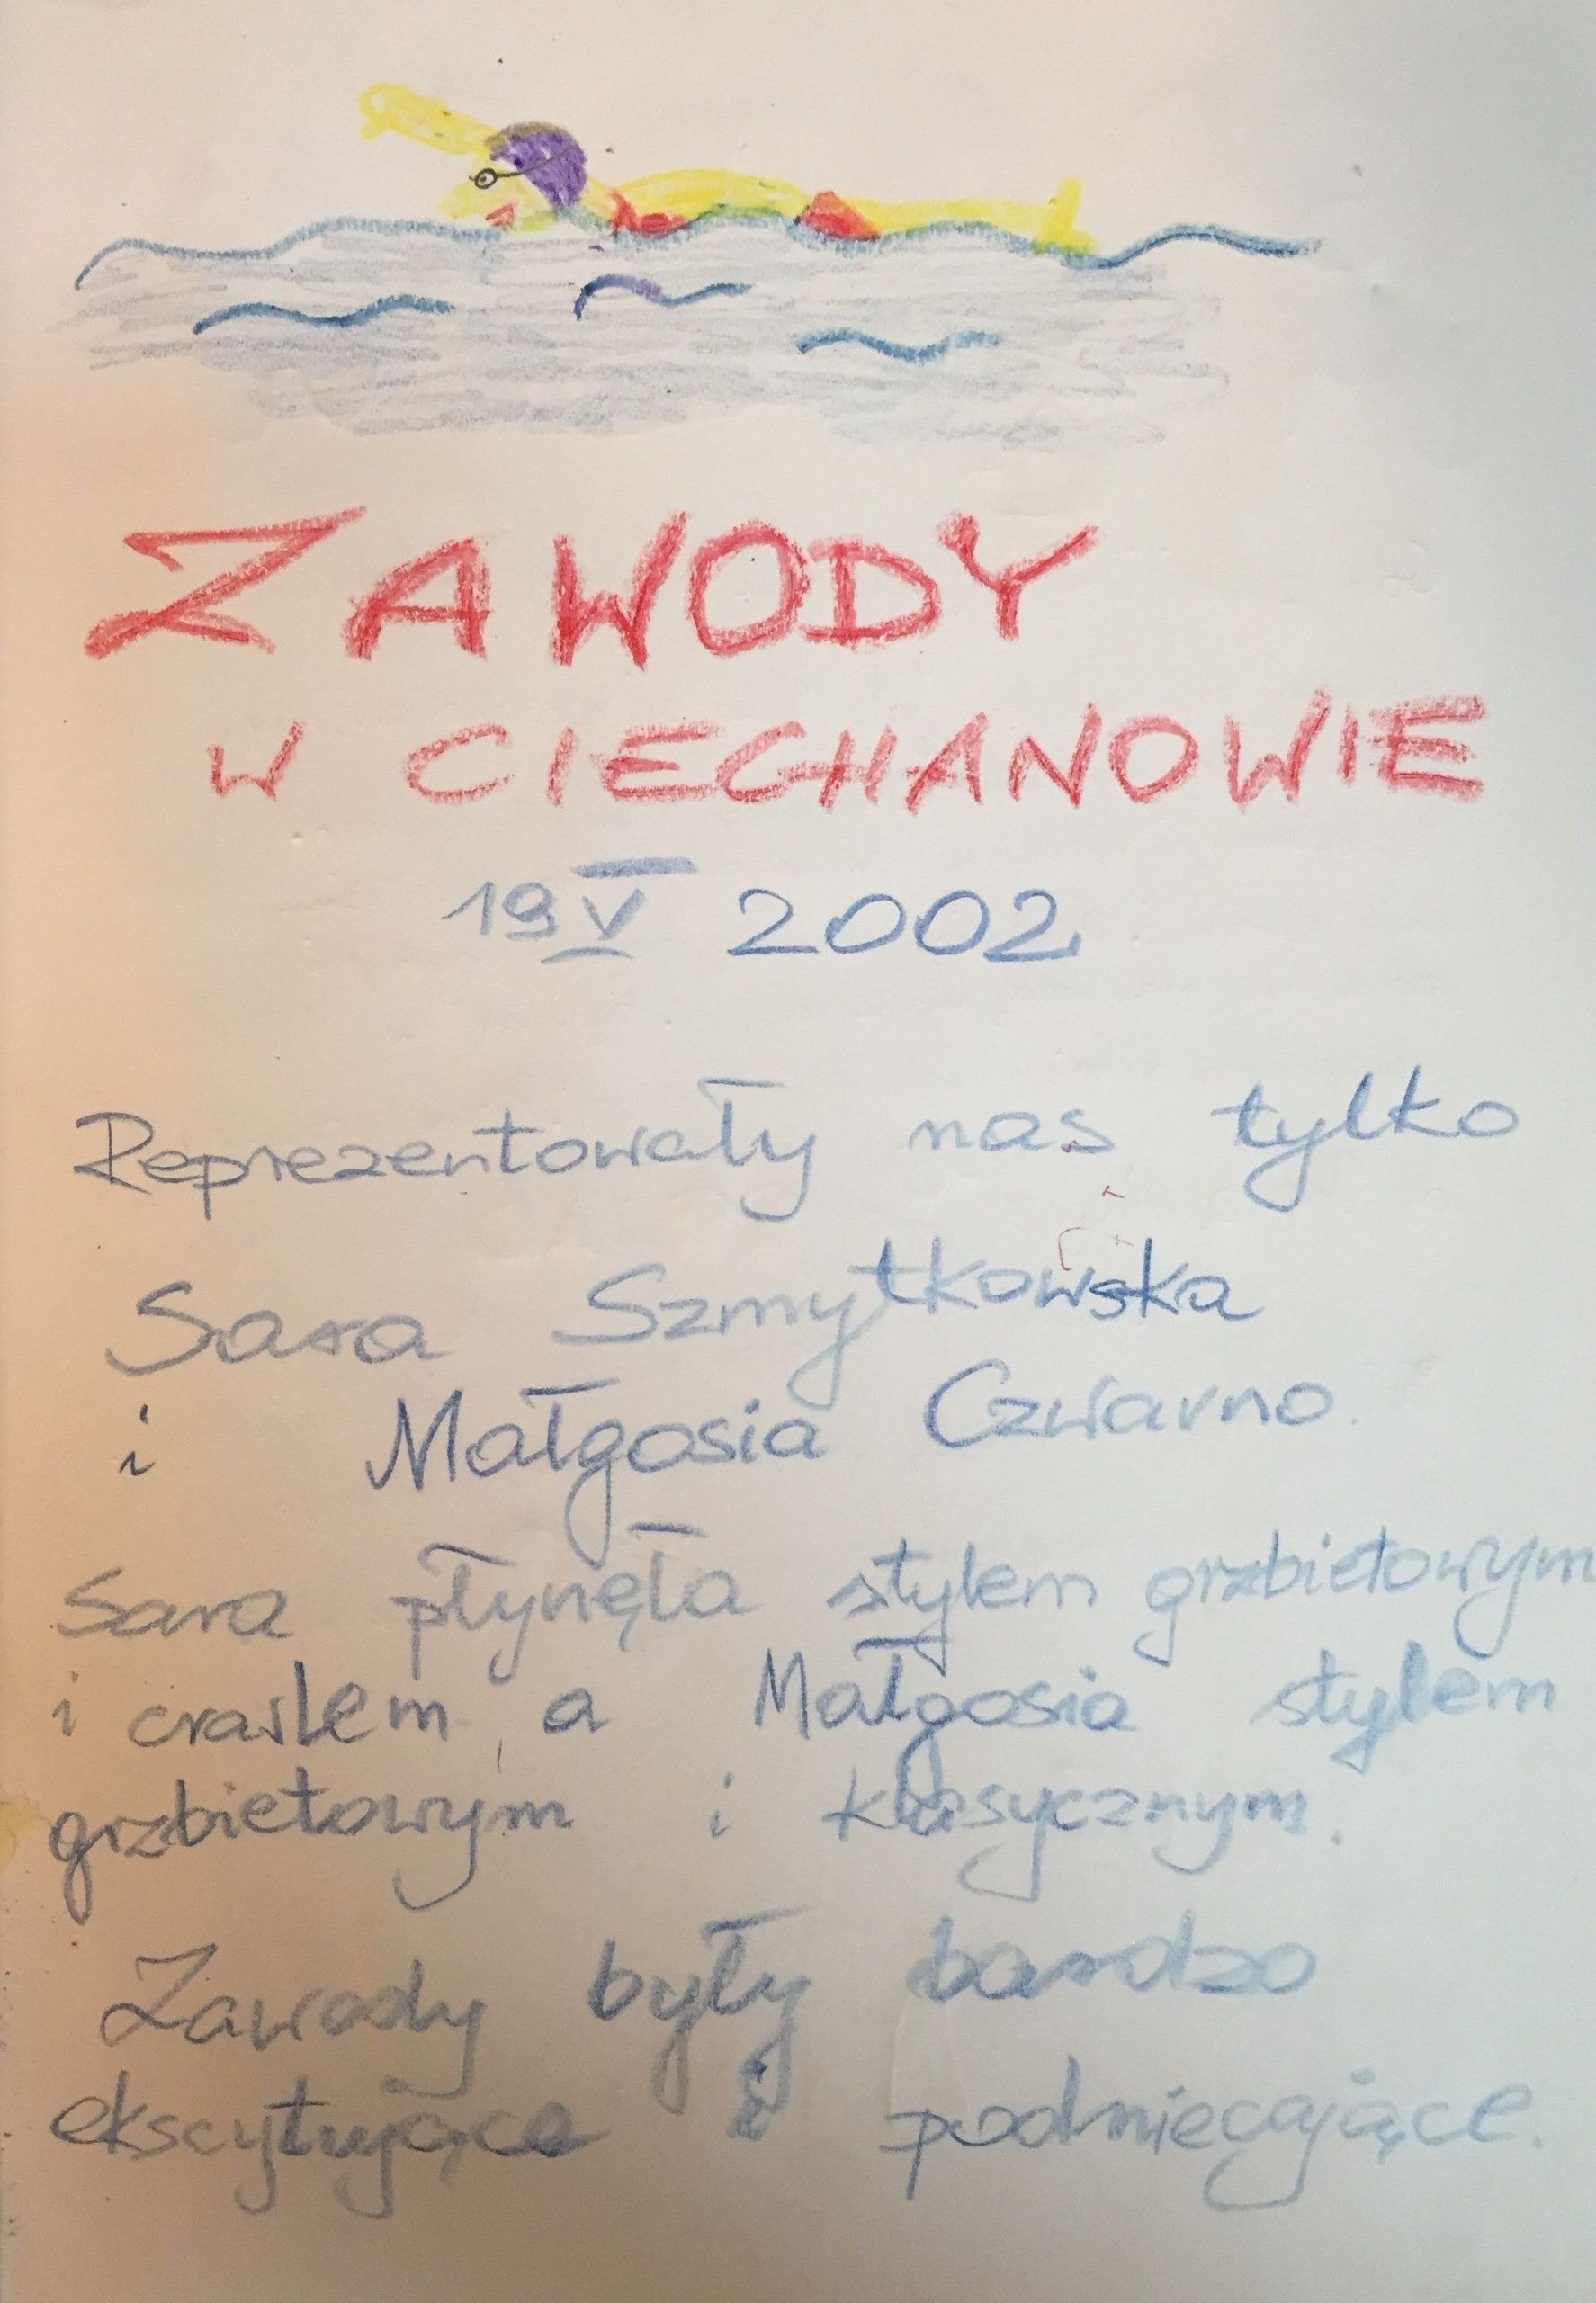 ZAWODY
W CIECHANOWIE
19 V 2002
Reprezentowały nas tylko
Sara Szmytkowska
i Małgosia Czwarno
Sara płynęła stylem grzbietowym
i crawlem, a Małgosia stylem
grzbietowym i klasycznym.
Zawody były bardzo
ekscytujące i podniecające.